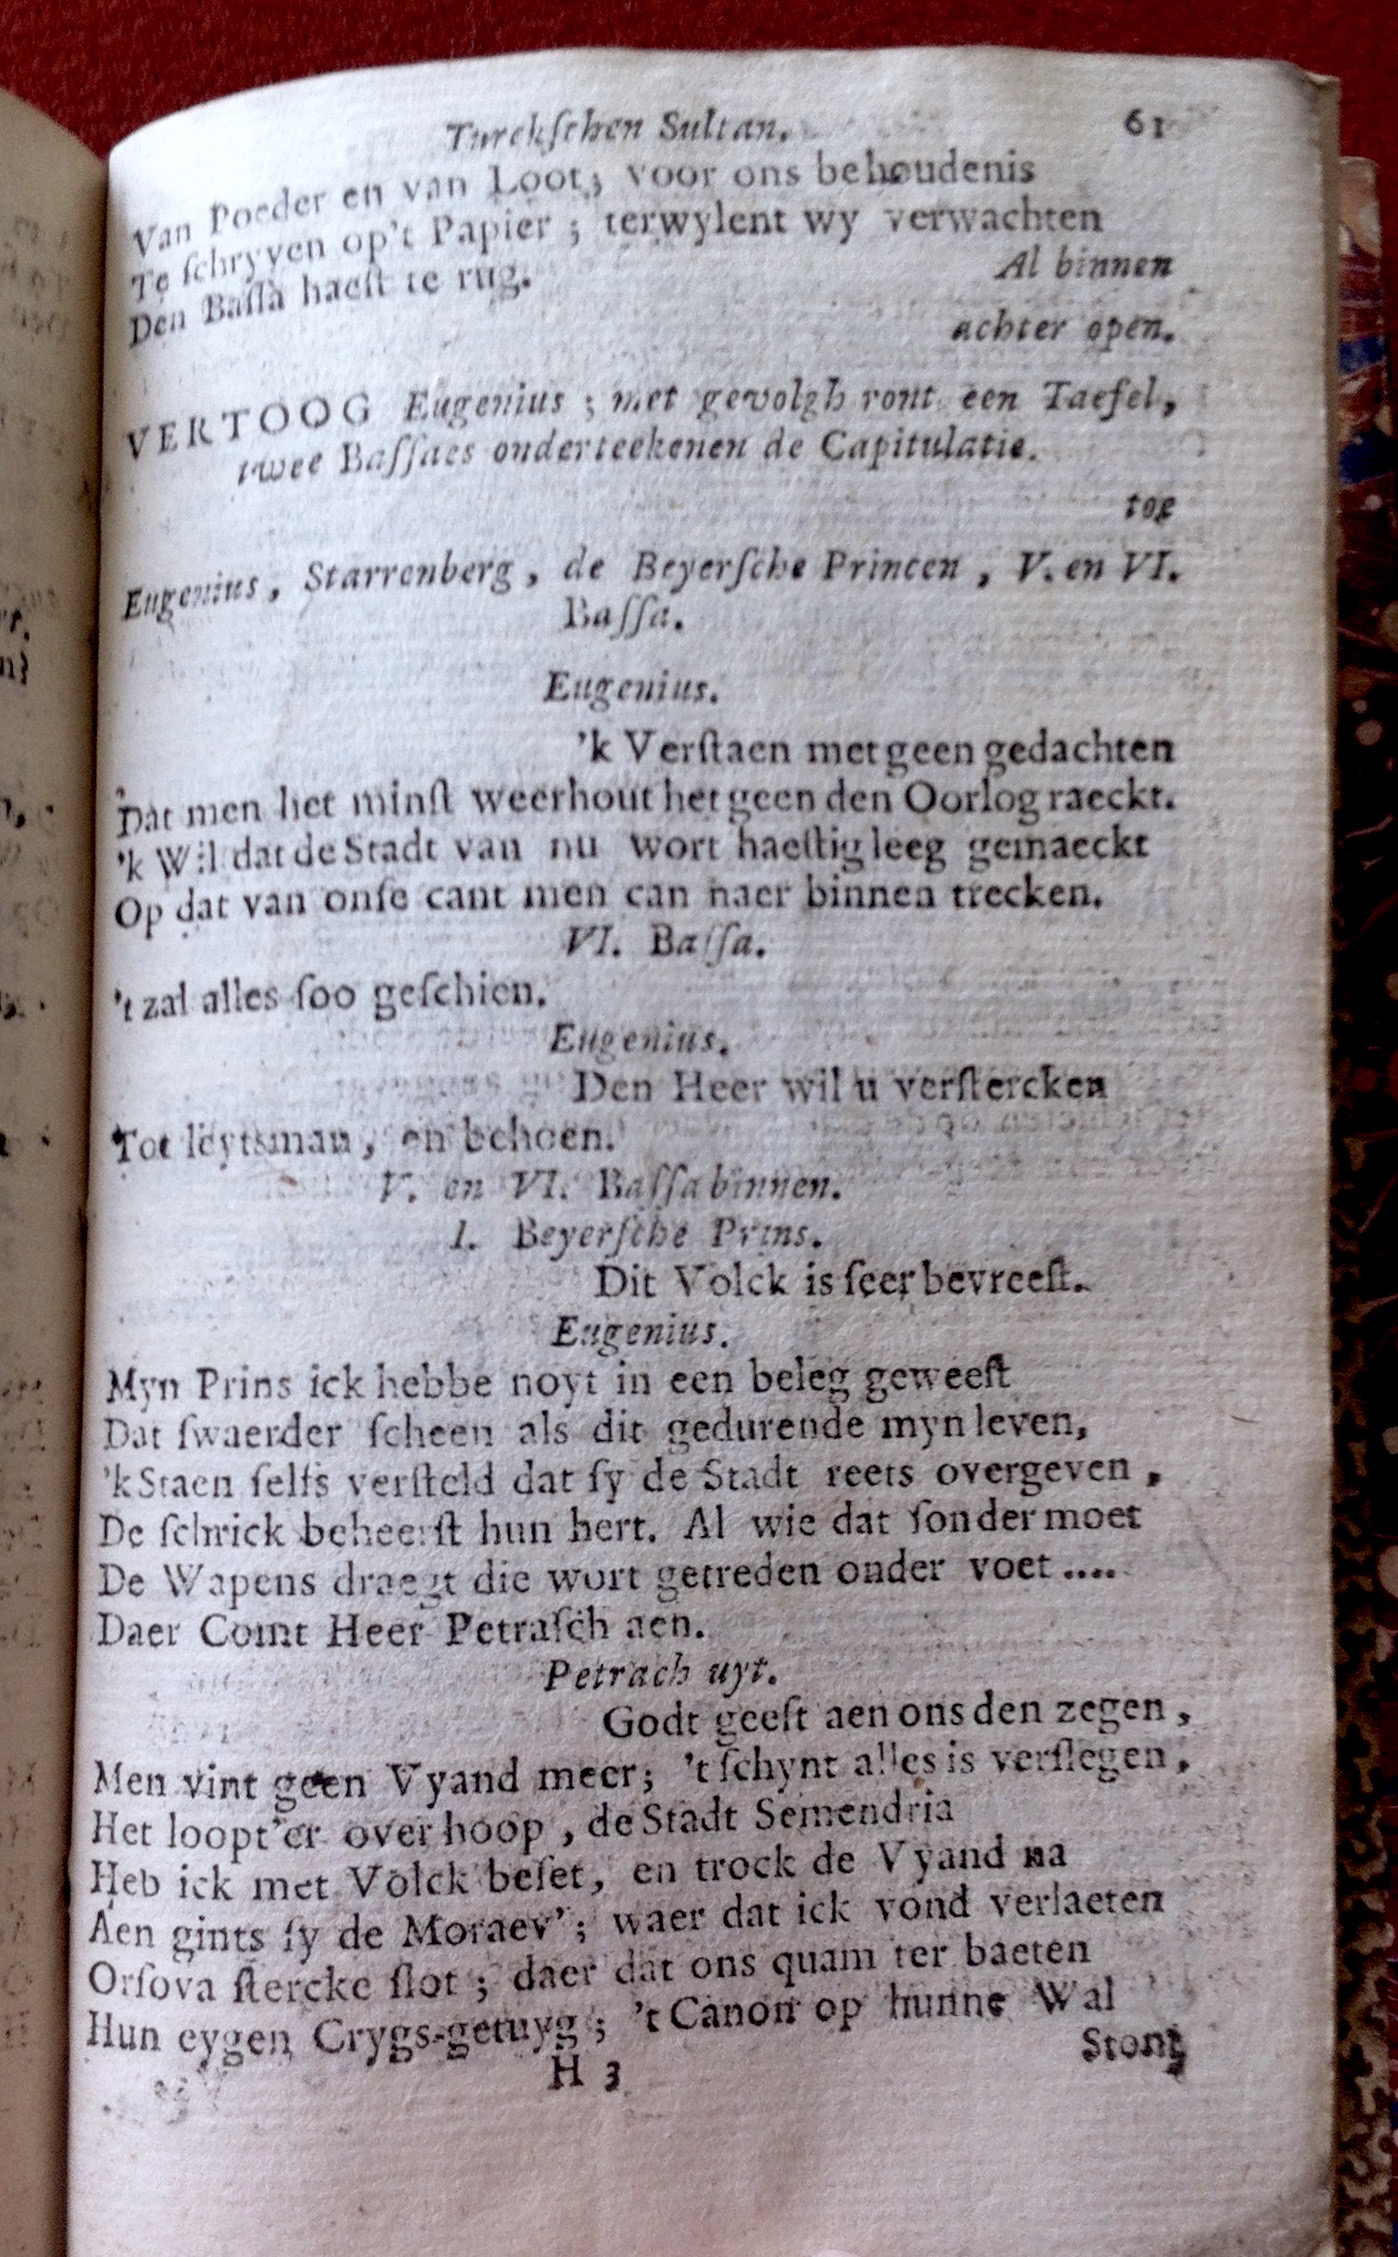 Turckſchen Sultan. 61
Van Poeder en van Loot, voor ons behoudenis
Te ſchryven op't Papier ; terwylent wy verwachten
Den Baſſa haeſt te rug.
Al binnen
achter open.
VERTOOG Eugenius ; met gevolgh ront een Taefel,
twee Baſſaes onderteekenen de Capitulatie.
toe
Eugenius, Starrenberg, de Beyerſche Princen, V. en VI.
Baſſa.
Eugenius.
'k Verſtaen met geen gedachten
Dat men het minſt weerhout het geen den Oorlog raeckt.
'k Wil dat de Stadt van nu wort haeſtig leeg gemaeckt
Op dat van onſe cant men can naer binnen trecken.
VI. Baſſa.
't zal alles ſoo geſchien.
Eugenius.
Den Heer wil u verſtercken
Tot leytsman, en behoen.
V. en VI. Baſſa binnen.
1. Beyerſche Prins.
Dit Volck is ſeer bevreeſt.
Eugenius.
Myn Prins ick hebbe noyt in een beleg geweeſt
Dat ſwaerder ſcheen als dit gedurende myn leven,
'k Staen ſelfs verſteld dat ſy de Stadt reets overgeven,
De ſchrick beheerſt hun hert. Al wie dat ſonder moet
De Wapens draegt die wort getreden onder voet ....
Daer Comt Heer Petraſch aen.
Petrach uyt.
Godt geeft aen ons den zegen,
Men vint geen Vyand meer; 't ſchynt alles is verſlegen,
Het loopt'er over hoop, de Stadt Semendria
Heb ick met Volck beſet, en trock de Vyand na
Aen gints ſy de Moraev'; waer dat ick vond verlaeten
Orſova ſtercke ſlot; daer dat ons quam ter baeten
Hun eygen Crygs-getuyg; 't Canon op hunne Wal
Stont
H 3